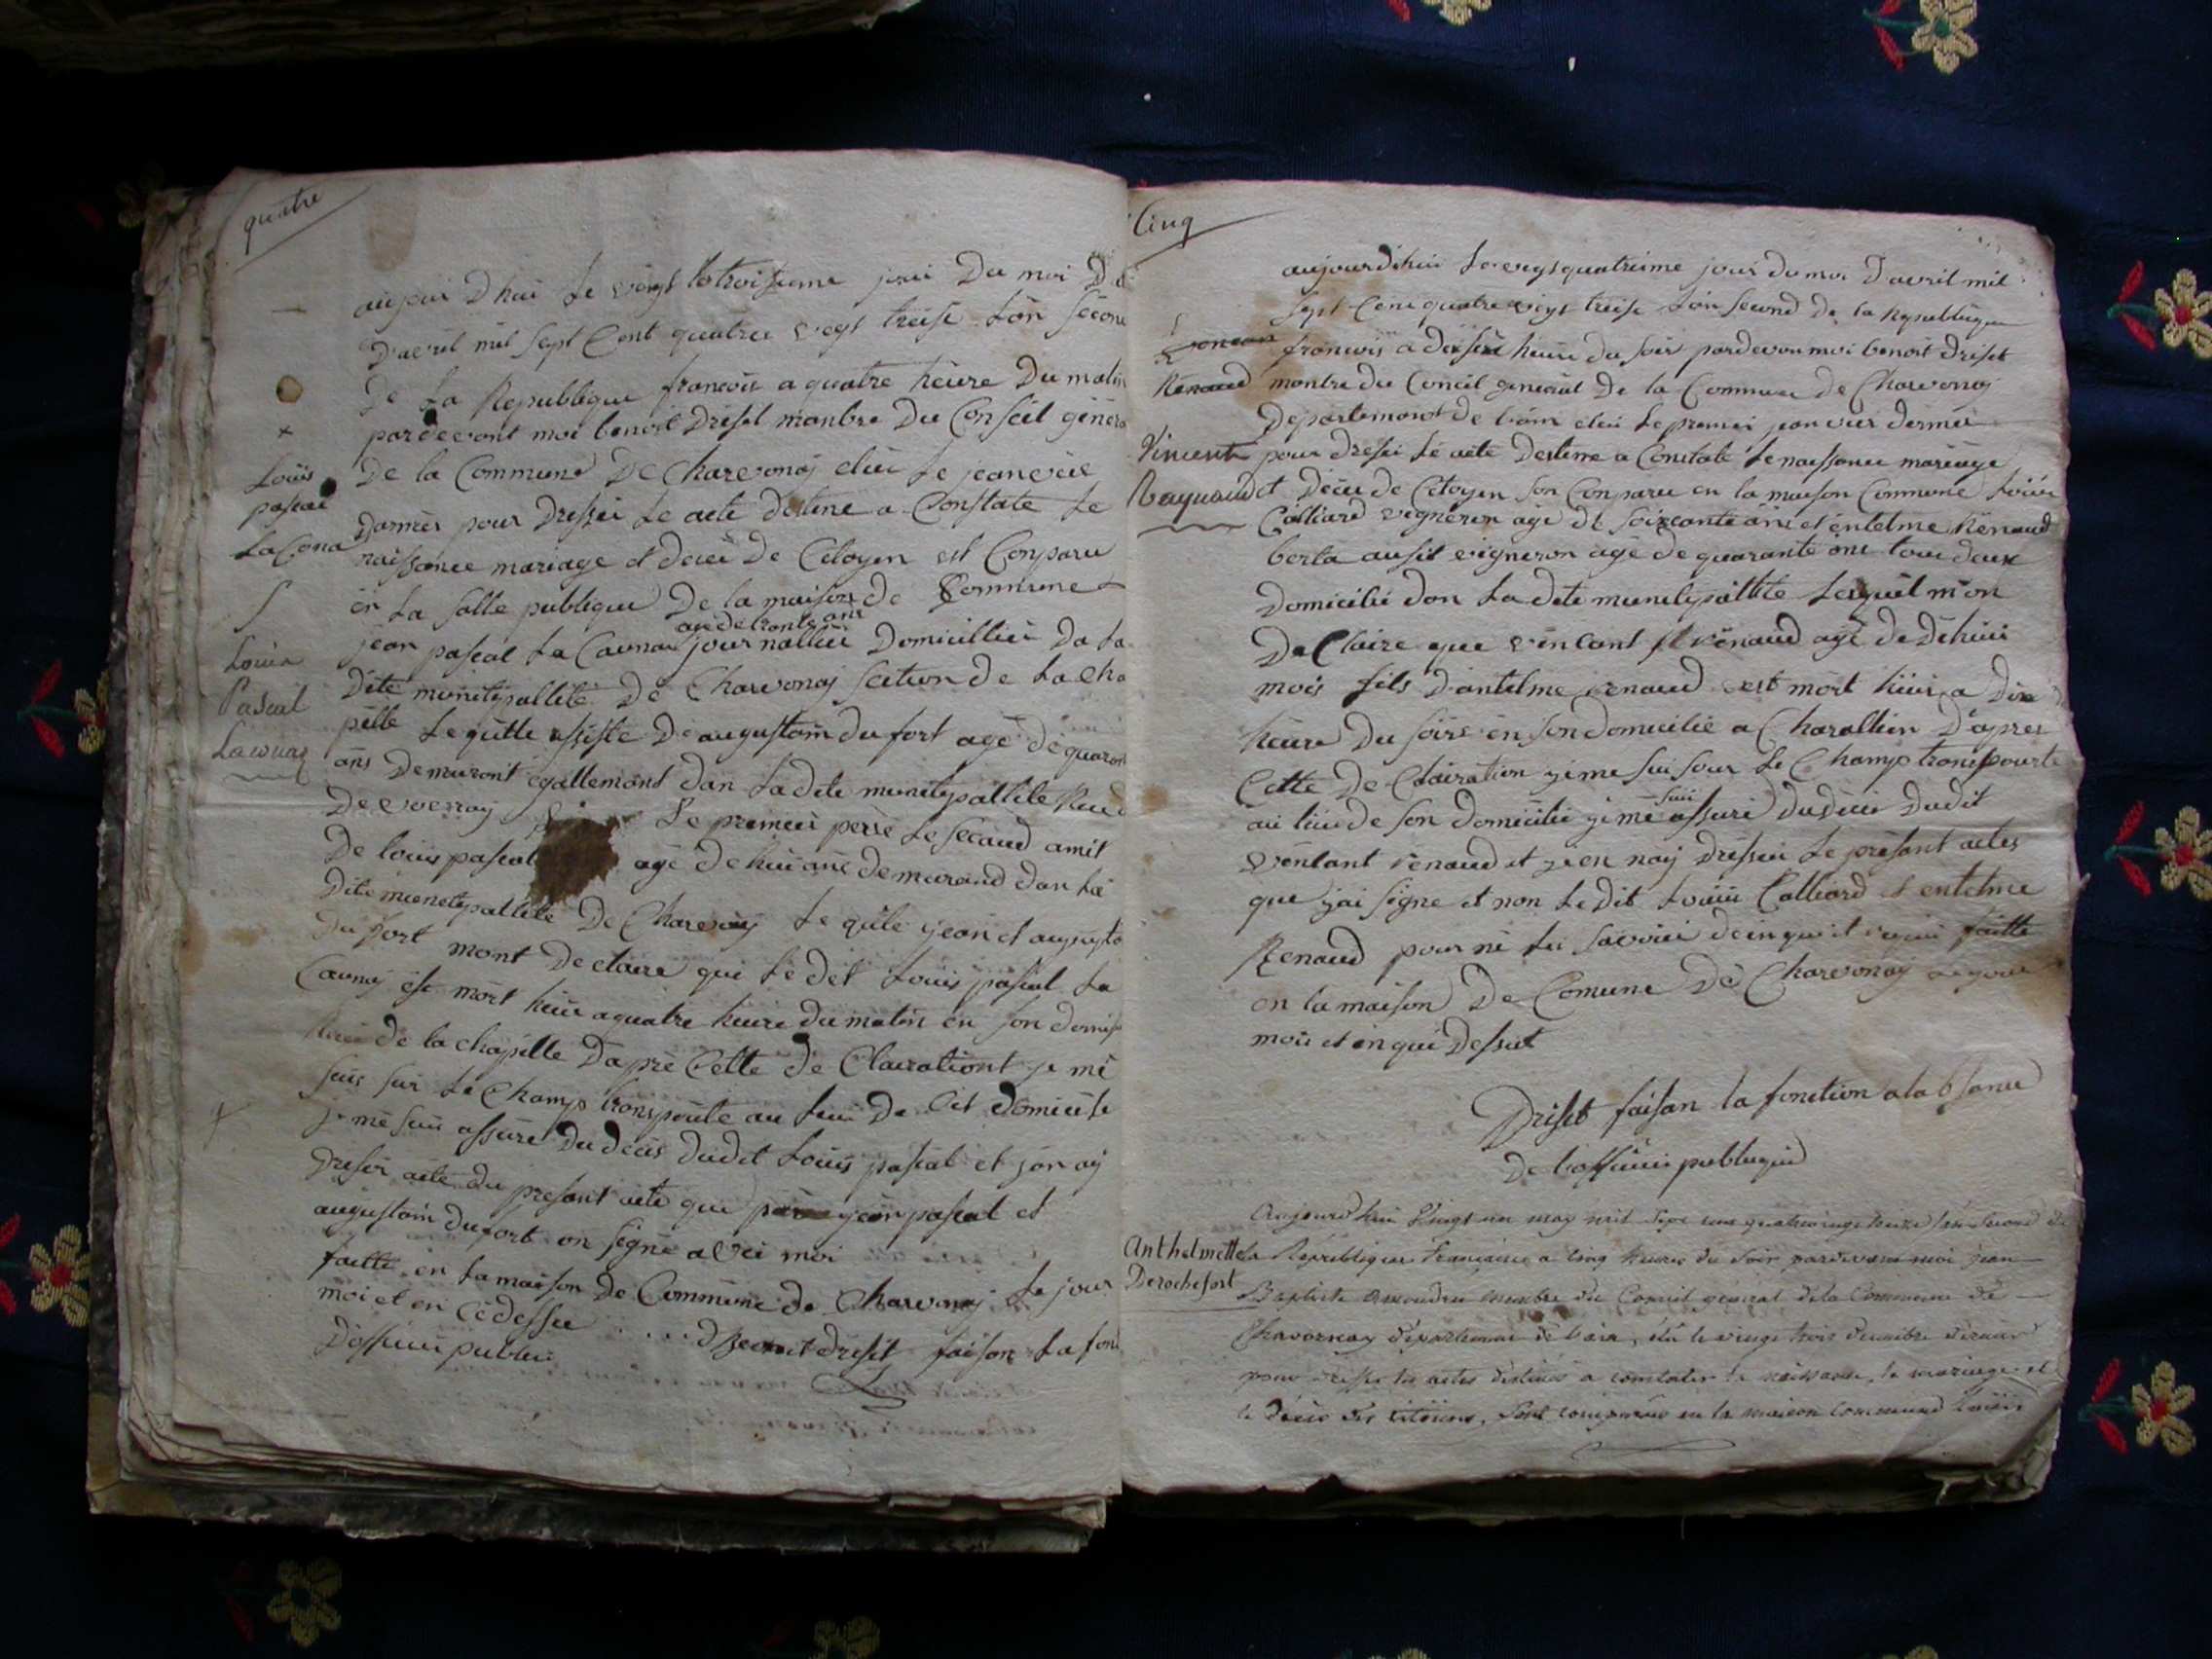 quatre
aujour Dhui Le vingt troisieme jour Du moi De
D'avril mil Sept Cent quatre vegt treise L'on Secon
De La Republique francois a quatre heure Du matin
pardevant moi benoit Driset manbre Du Conseil génera
Louis
pascal
La Cona
De la Commune De Charvonaj elui Le jeanvie
Darnier pour Dresser Le acte destine a Constate Le
naissance mariage et decei De Citoyen est Conparu
én La Salle publique De la maison de Commune
agé de trante ans
jean pascal La Caunai journallier Domicillier Da La
Louis
Pascal
Dite municipallité De Charvonaj Section de La Cha
pelle Le quelle assiste De augustain du fort agé de quaran
ans Demeuront égallemant Dan La Dite municipallité
De vveray Le premier perre Le Secand amit
De louis pascal agé de huit ans demeurand dan La
Dite municipallité De Charvonay Le quele jean et augusta
Du fort mont De claire que Le dit Louis pascal La
Caunaj est mort hiu a quatre heure du matin en son domis
de la chapelle D'apré Cette de Clairationt je me
suis sur Le Champ transpoute au Lieu De Cit domicile
je me suis assuré Du décés dudit Louis pascal et j'an ay
Dresér acte du presant acte que jean pascal et
augustain dufort on signé a vei moi
faitte en La maison De Commune de Charvonaj Le jour
moi et en cidessu Benoit driset faison La fon
D'officier public
Cinq
aujourdhui Le vegt quatrieme jour du moi D'avril mil
sept Cent quatre vegt treise L'on second De la Republique
francois a heure du soir pardevan moi benoit Driset
Renaud
manbre du Conseil general De la Commune De Charvonaj
Departemant de L'ain elui Le premier jeanvier dernier
Vincent
Raynaud
pour dreser Le acte Destine a Constate Le naissance mariage
et Décée de Citoyen son Conparu en la maison Commune Louis
Calliard vigneron agé de soixcante ans et entelme Renaud
berta ausit vigneron agé de quarante ans tou deux
Domicilié dan La dite municipallité Lesquel m'on
De Claire que vincant Renaud agé de Dehuit
mois fils D'antelme renaud est mort hiu a Dix
heure Du soire en son domicilié a Charallien D'apres
Cette De Clairation je me sui sur Le Champ transpourte
au lieu de son domicilié je me suis assuré du décei Dudit
vincant renaud et je en nay Dresser Le présant actes
que j'ai signe et non Le Dit Louis Calliard et entelme
Renaud pour ne Le savoir faitte
en la maison De Comune De Charvonay
mois et en qui Dessut
Driset faisan la fonction a la bsance
De l'officier publique
Anthelmette
Derochefort
Aujourdhui Vingt un may mil sept cent quatrevingt treize l'an second de
la République Francaise a cinq heures du soir pardevant moi jean
Baptiste membre du Conseil general de la Commune de
Chavornay département de l'ain, élu le vingt trois decembre dernier
pour dresser les actes destinés a constater la naissance, le mariage et
le décès des citoiens, sont comparus en la maison commune Louis